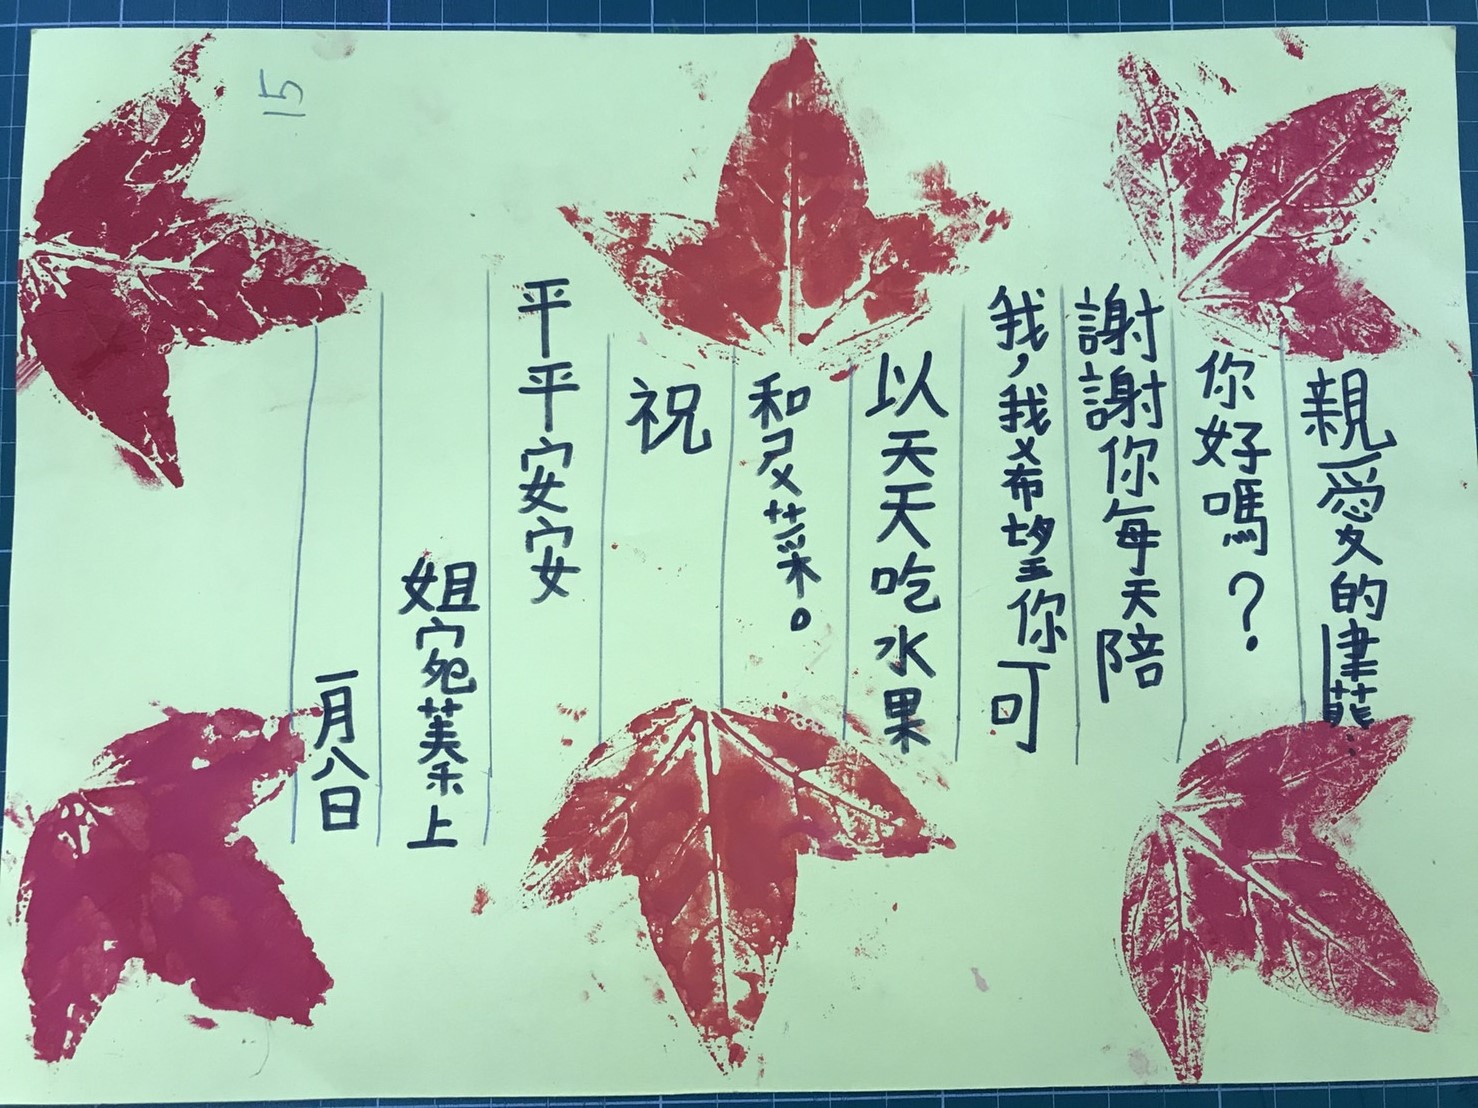 親愛的聿
你好嗎？
謝謝你每天陪
我，我希望你可
以天天吃水果
和ㄕㄨ菜。
祝
平平安安
姐宛蓁上
一月八日
15